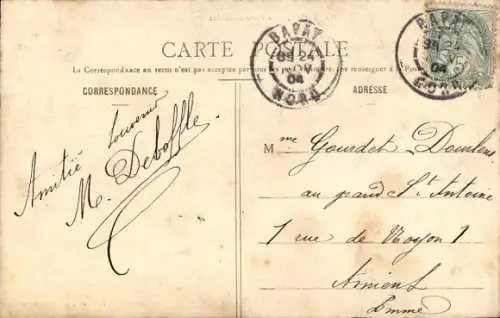 CARTE POSTALE
La Correspondance au recto n'est pas acceptée par tous les pays
CORRESPONDANCE
ADRESSE
BAVAY
24
04
NORD
BAVAY
24
04
Amitié Souvenir
M. Deboffle
Mme Gourdet-Dourlens
au grand St Antoine
1 rue de Noyon 1
Amiens
Somme